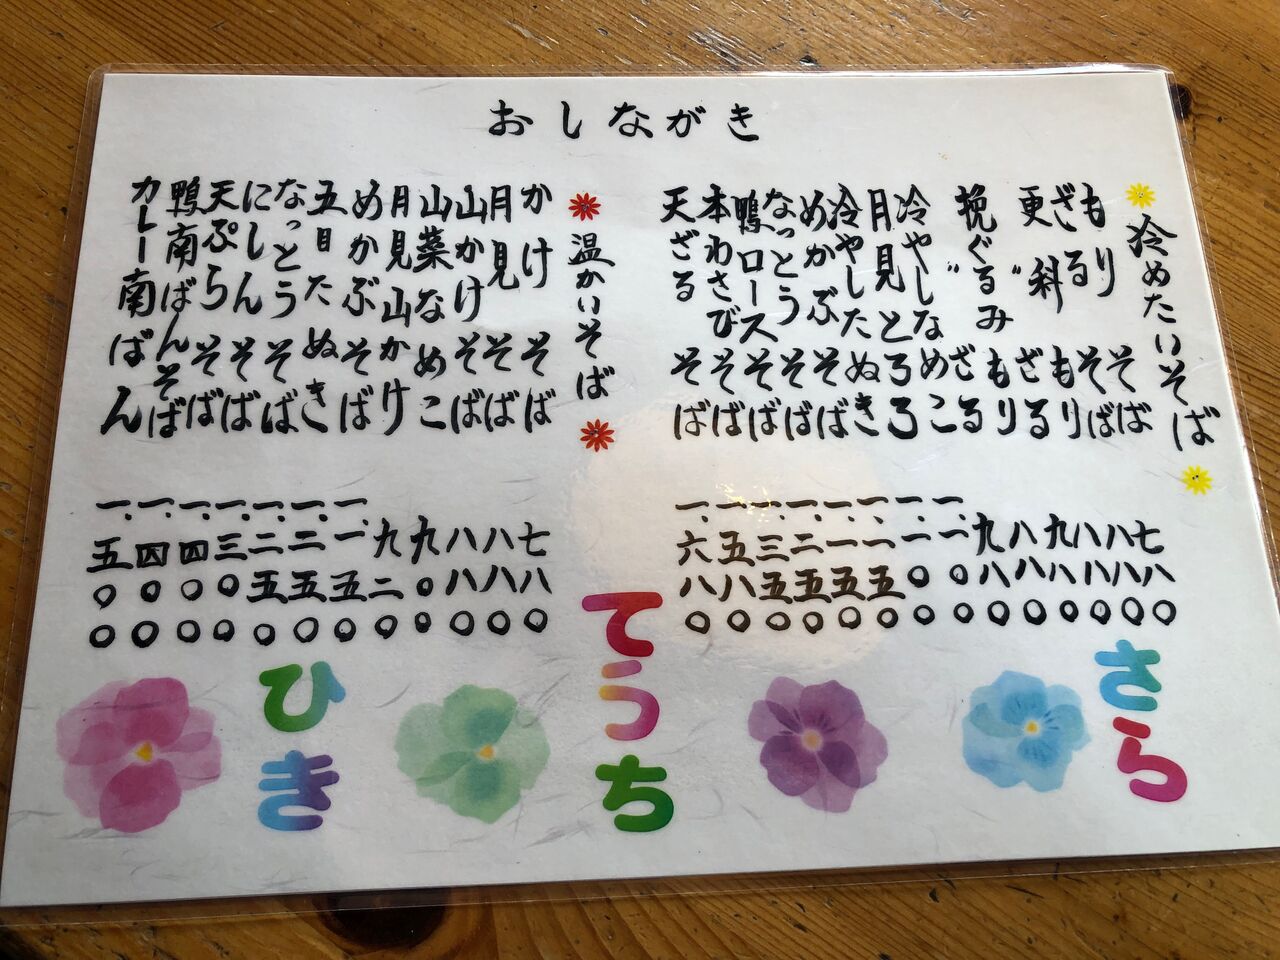 おしながき
冷たいそば
もりそば 七八〇
ざるそば 八八〇
更科もり 八八〇
〃ざる 九八〇
挽ぐるみもり 八八〇
〃ざる 九八〇
冷やしなめこ 一、一〇〇
月見とろろ 一、一〇〇
冷やしたぬき 一、二五〇
めかぶそば 一、一五〇
なっとうそば 一、二五〇
鴨ロースそば 一、三五〇
本わさびそば 一、五八〇
天ざるそば 一、六八〇
温かいそば
かけそば 七八〇
月見そば 八八〇
山かけそば 八八〇
山菜なめこ 九〇〇
月見山かけ 九二〇
めかぶそば 一、一五〇
五目たぬき 一、二五〇
なっとうそば 一、二五〇
にしんそば 一、三〇〇
天ぷらそば 一、四〇〇
鴨南ばんそば 一、四〇〇
カレー南ばん 一、五〇〇
さら
てうち
ひき